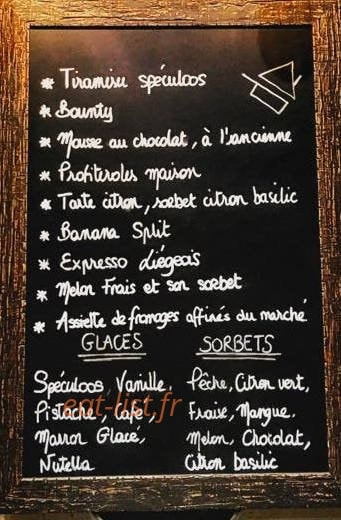 * Tiramisu spéculoos
* Bounty
* Mousse au chocolat, à l'ancienne
* Profiteroles maison
* Tarte citron, sorbet citron basilic
* Banana Split
* Expresso Liégeois
* Melon Frais et son sorbet
* Assiette de fromages affinés du marché
GLACES
Spéculoos, Vanille,
Pistache, Café,
Marron Glacé,
Nutella
SORBETS
Pêche, Citron vert,
Fraise, Mangue,
Melon, Chocolat,
Citron basilic
eat-list.fr